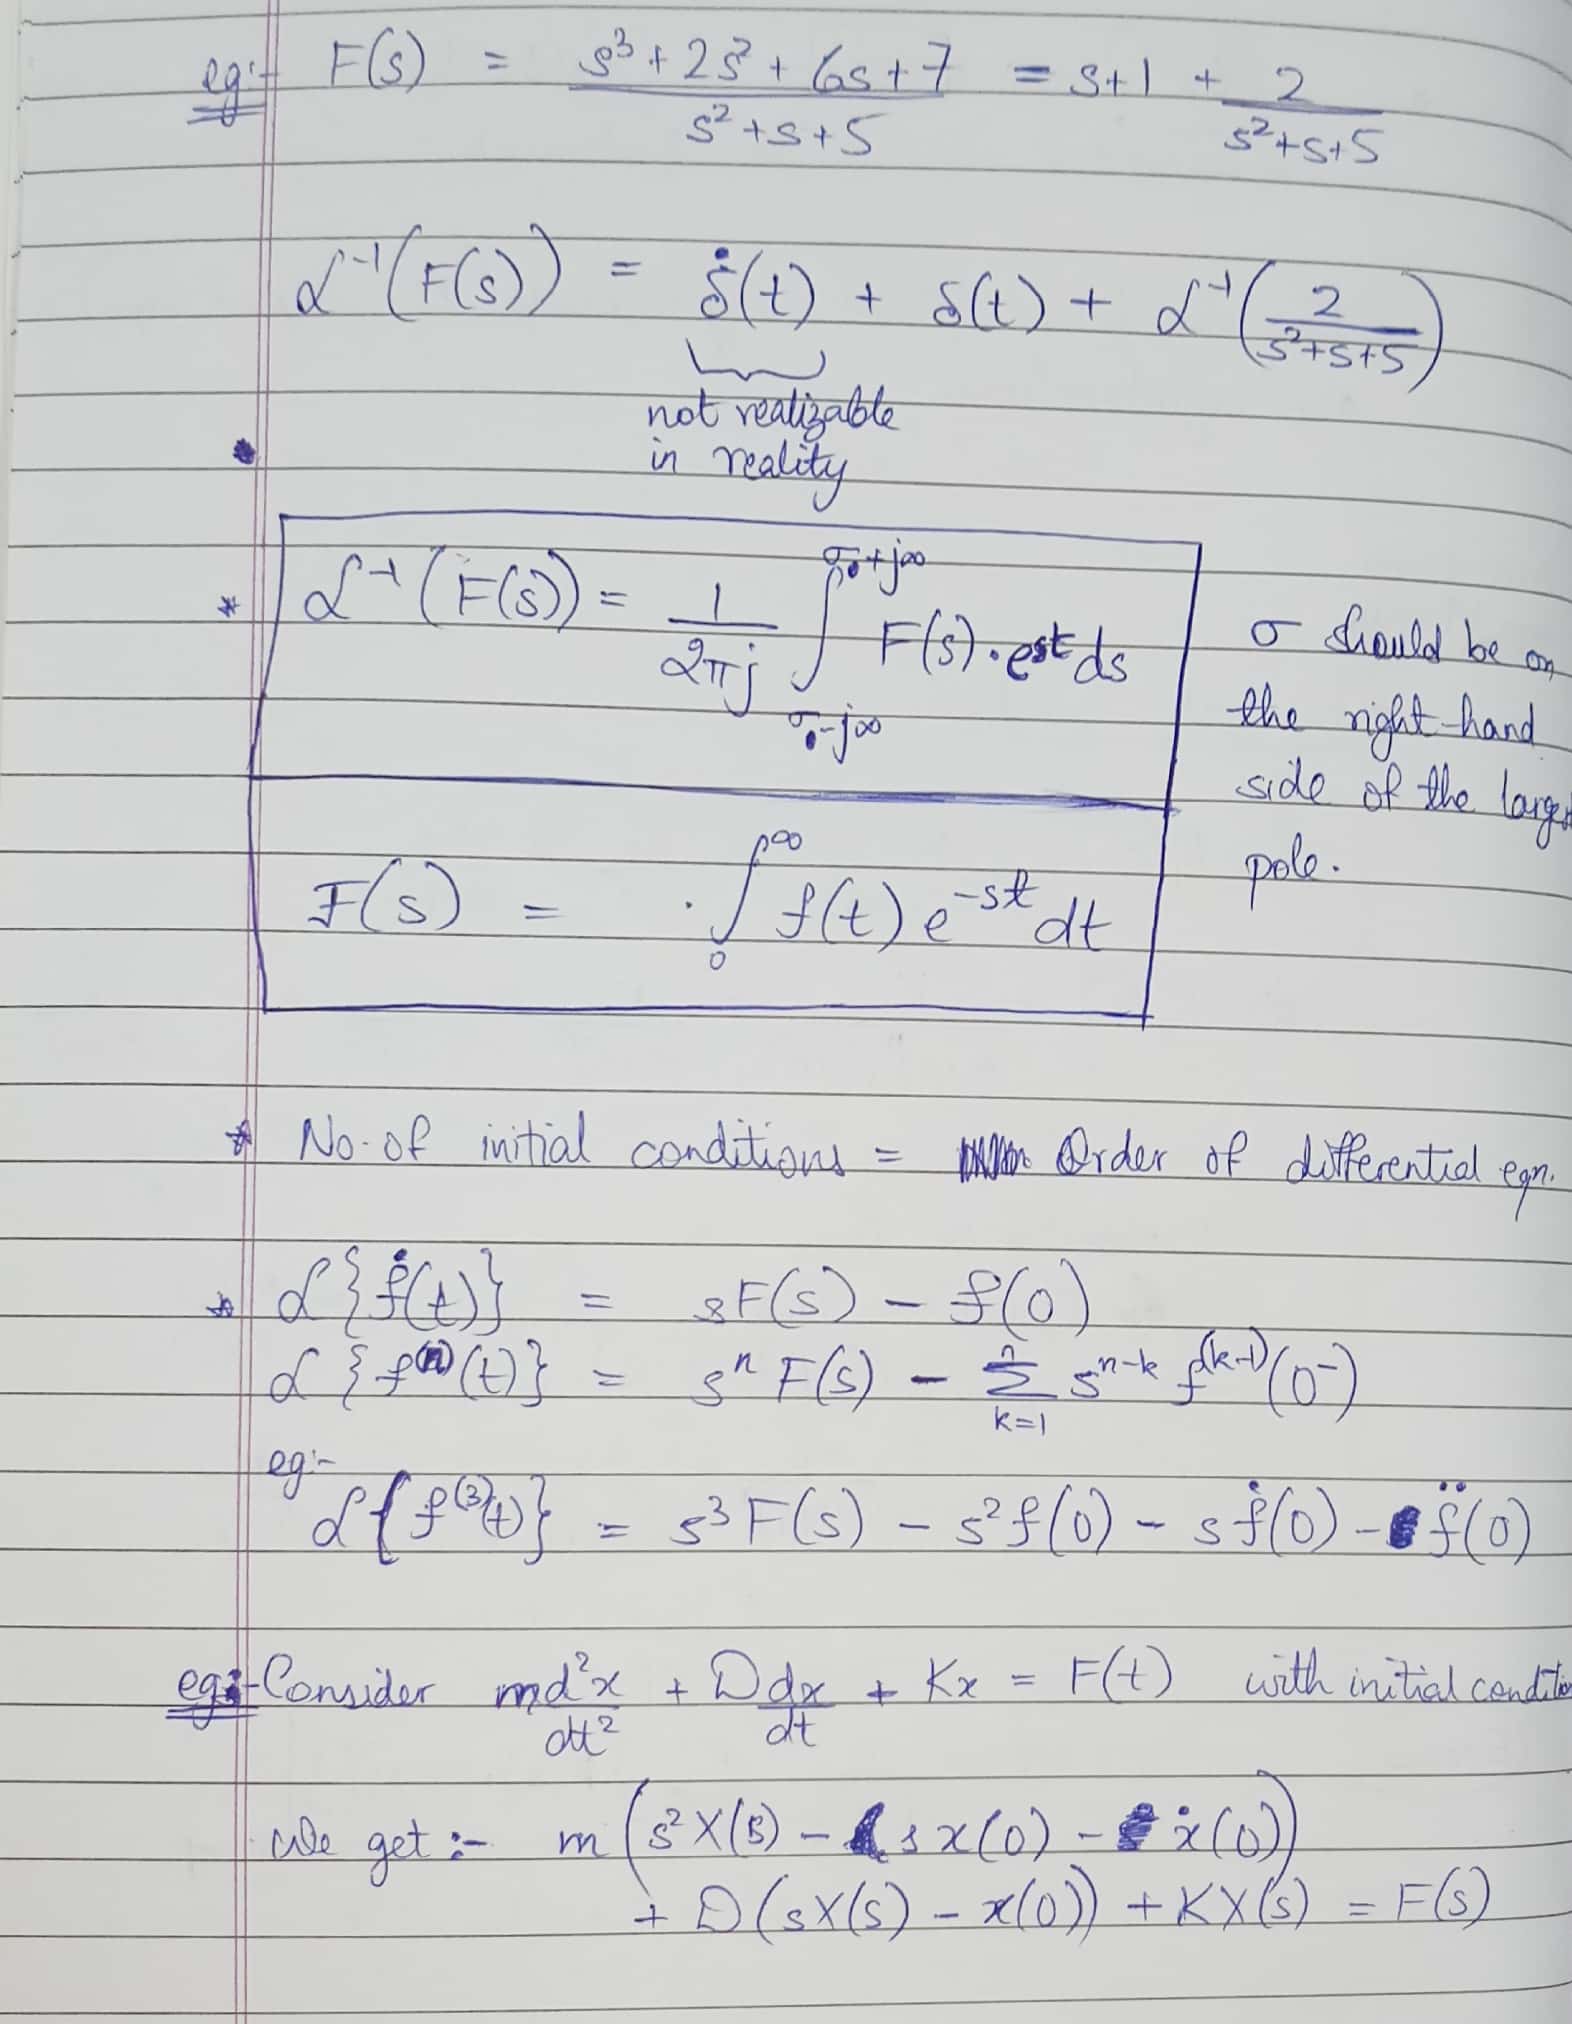 eg:- F(s) = (s³ + 2s² + 6s + 7)/(s² + s + 5) = s + 1 + 2/(s² + s + 5)
ℒ⁻¹(F(s)) = δ̇(t) + δ(t) + ℒ⁻¹(2/(s² + s + 5))
not realizable
in reality
* ℒ⁻¹(F(s)) = 1/(2πj) ∫_{σ-j∞}^{σ+j∞} F(s)·e^{st} ds
σ should be on
the right hand
side of the
pole.
F(s) = ∫₀^∞ f(t) e^{-st} dt
* No. of initial conditions = Order of differential eqn.
* ℒ{ḟ(t)} = sF(s) - f(0)
ℒ{f^{(n)}(t)} = sⁿ F(s) - Σ_{k=1}^{n} s^{n-k} f^{(k-1)}(0⁻)
eg:-
ℒ{f^{(3)}(t)} = s³F(s) - s²f(0) - sḟ(0) - f̈(0)
eg:- Consider md²x/dt² + D dx/dt + Kx = F(t) with initial
We get :- m(s²X(s) - s x(0) - ẋ(0))
+ D(sX(s) - x(0)) + KX(s) = F(s)